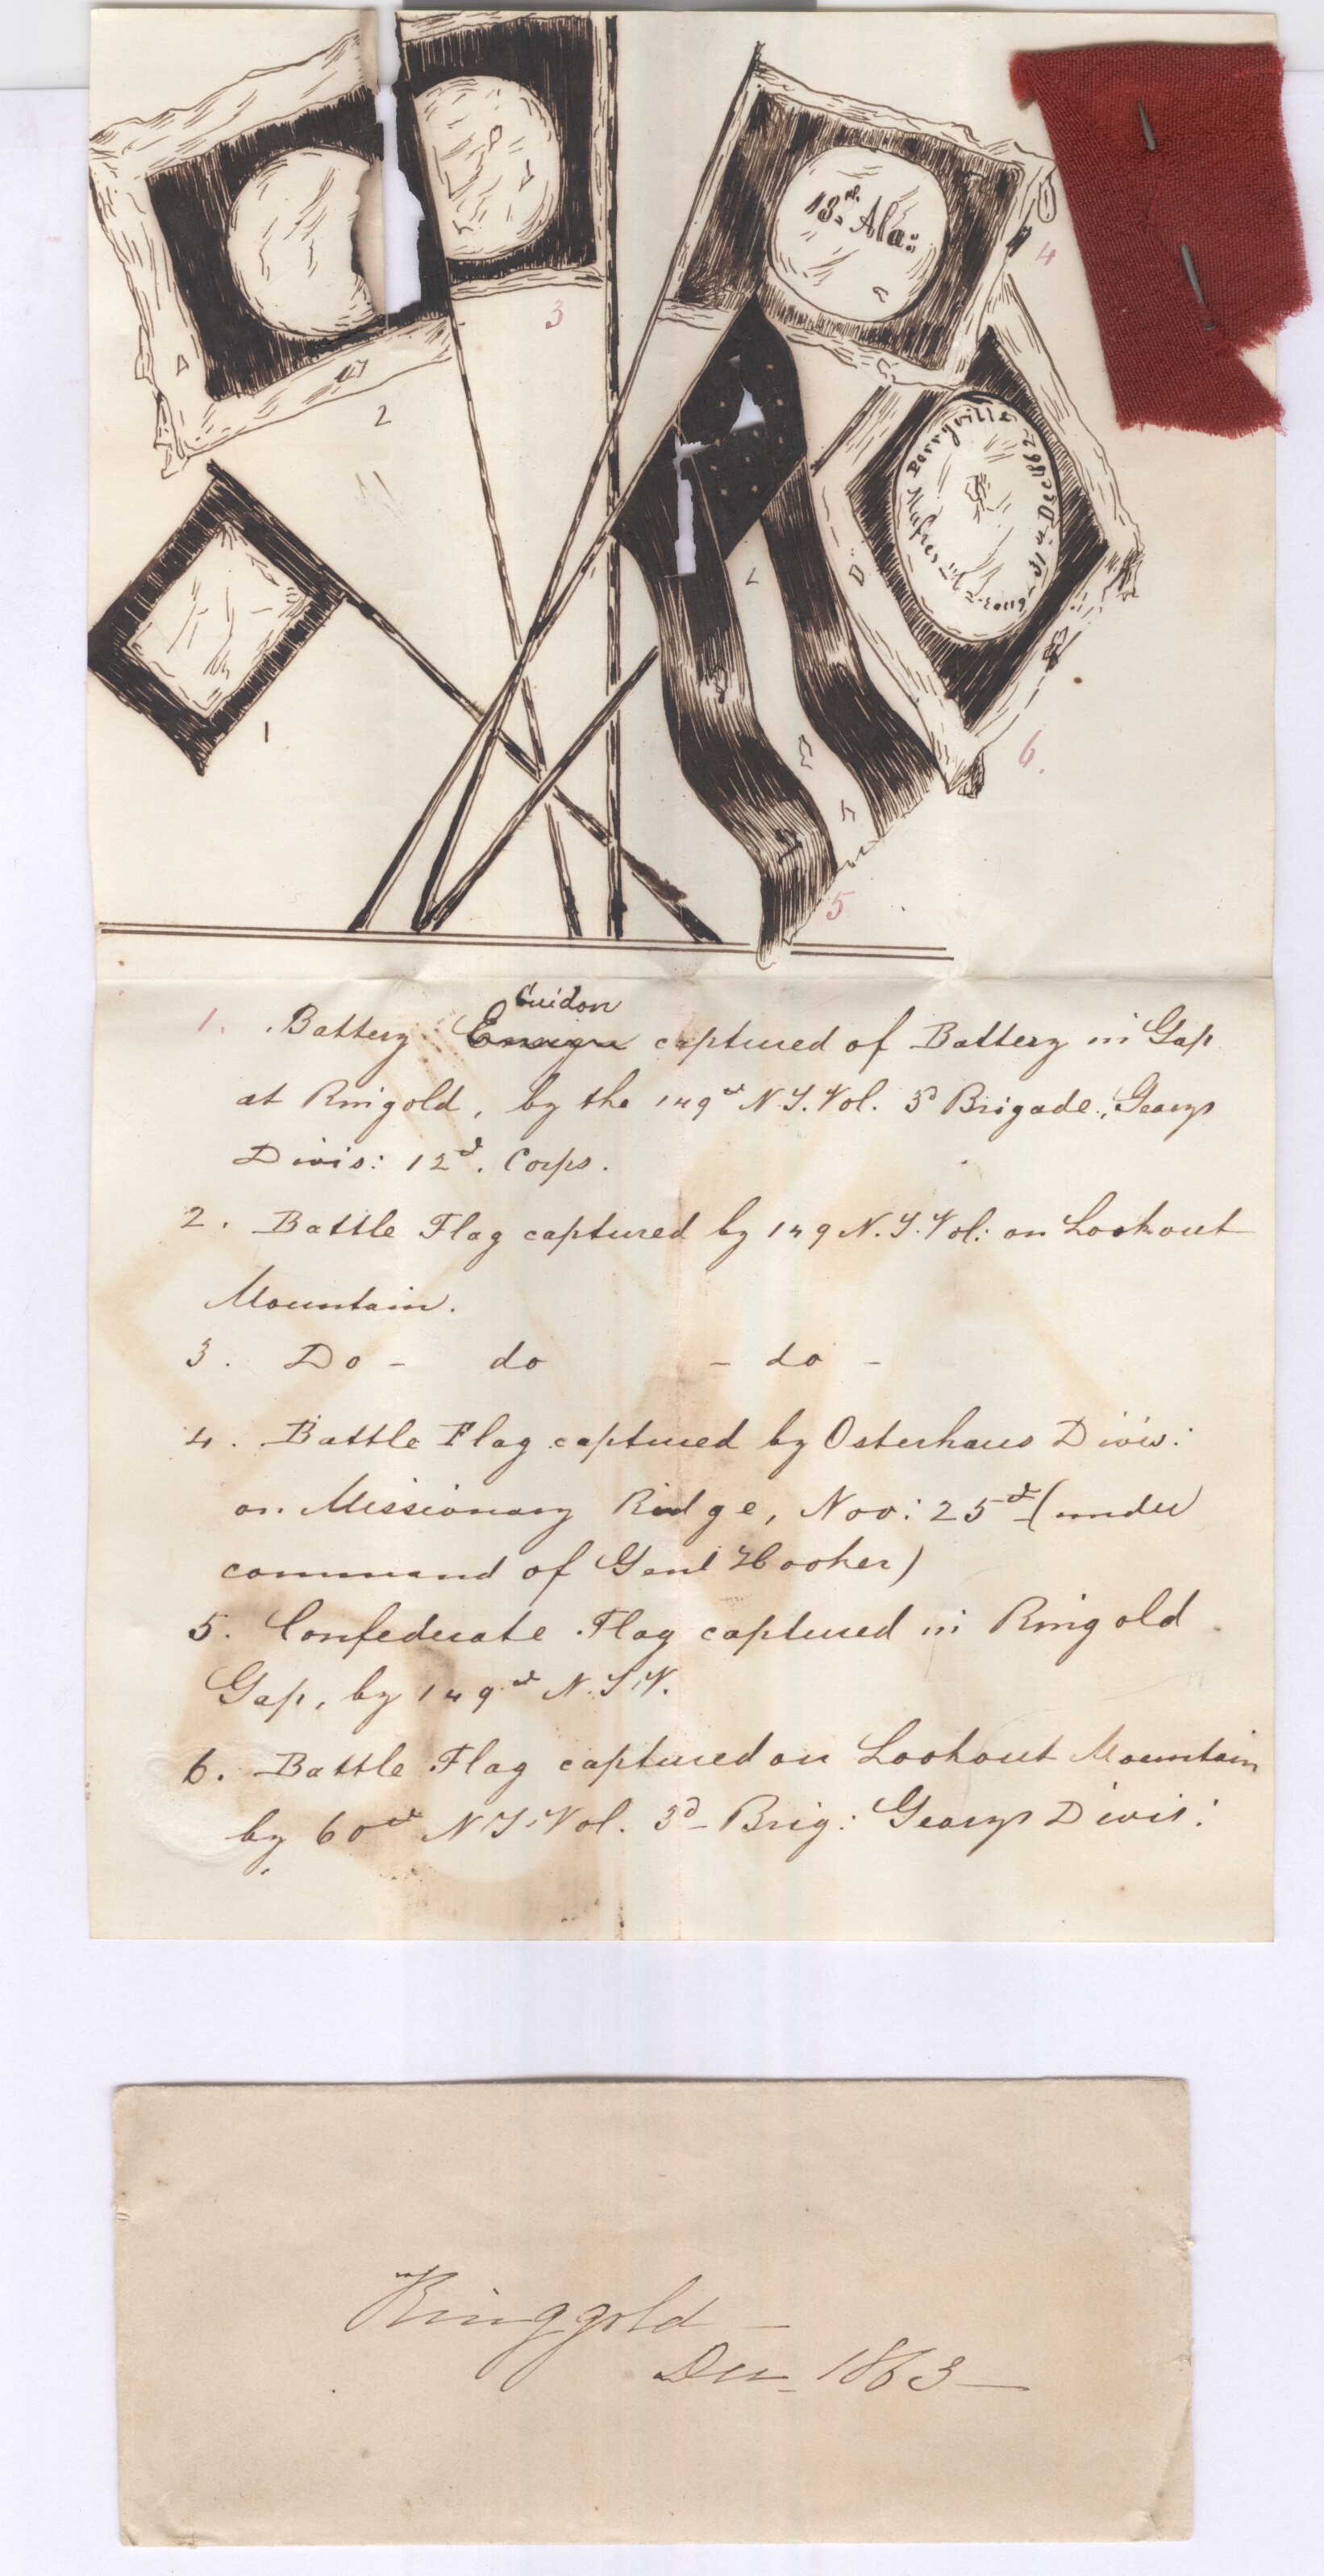 3
13.rd Ala:
4
2
Perryville
Mufres
31st Decr 1862
1
6.
5
Guidon
1. Battery Ensign captured of Battery in Gap
at Ringold, by the 149th N.Y. Vol. 3d Brigade, Gearys
Divis: 12th. Corps.
2. Battle Flag captured by 149 N.Y. Vol: on Lookout
Mountain.
3. Do - do - do -
4. Battle Flag captured by Osterhaus Divis:
on Missionary Ridge, Nov: 25th (under
command of Genl Hooker)
5. Confederate Flag captured in Ringold
Gap, by 149th N.Y.V.
6. Battle Flag captured on Lookout Mountain
by 60th N.Y. Vol. 3d Brig: Gearys Divis:
Ringgold -
Dec 1863 -